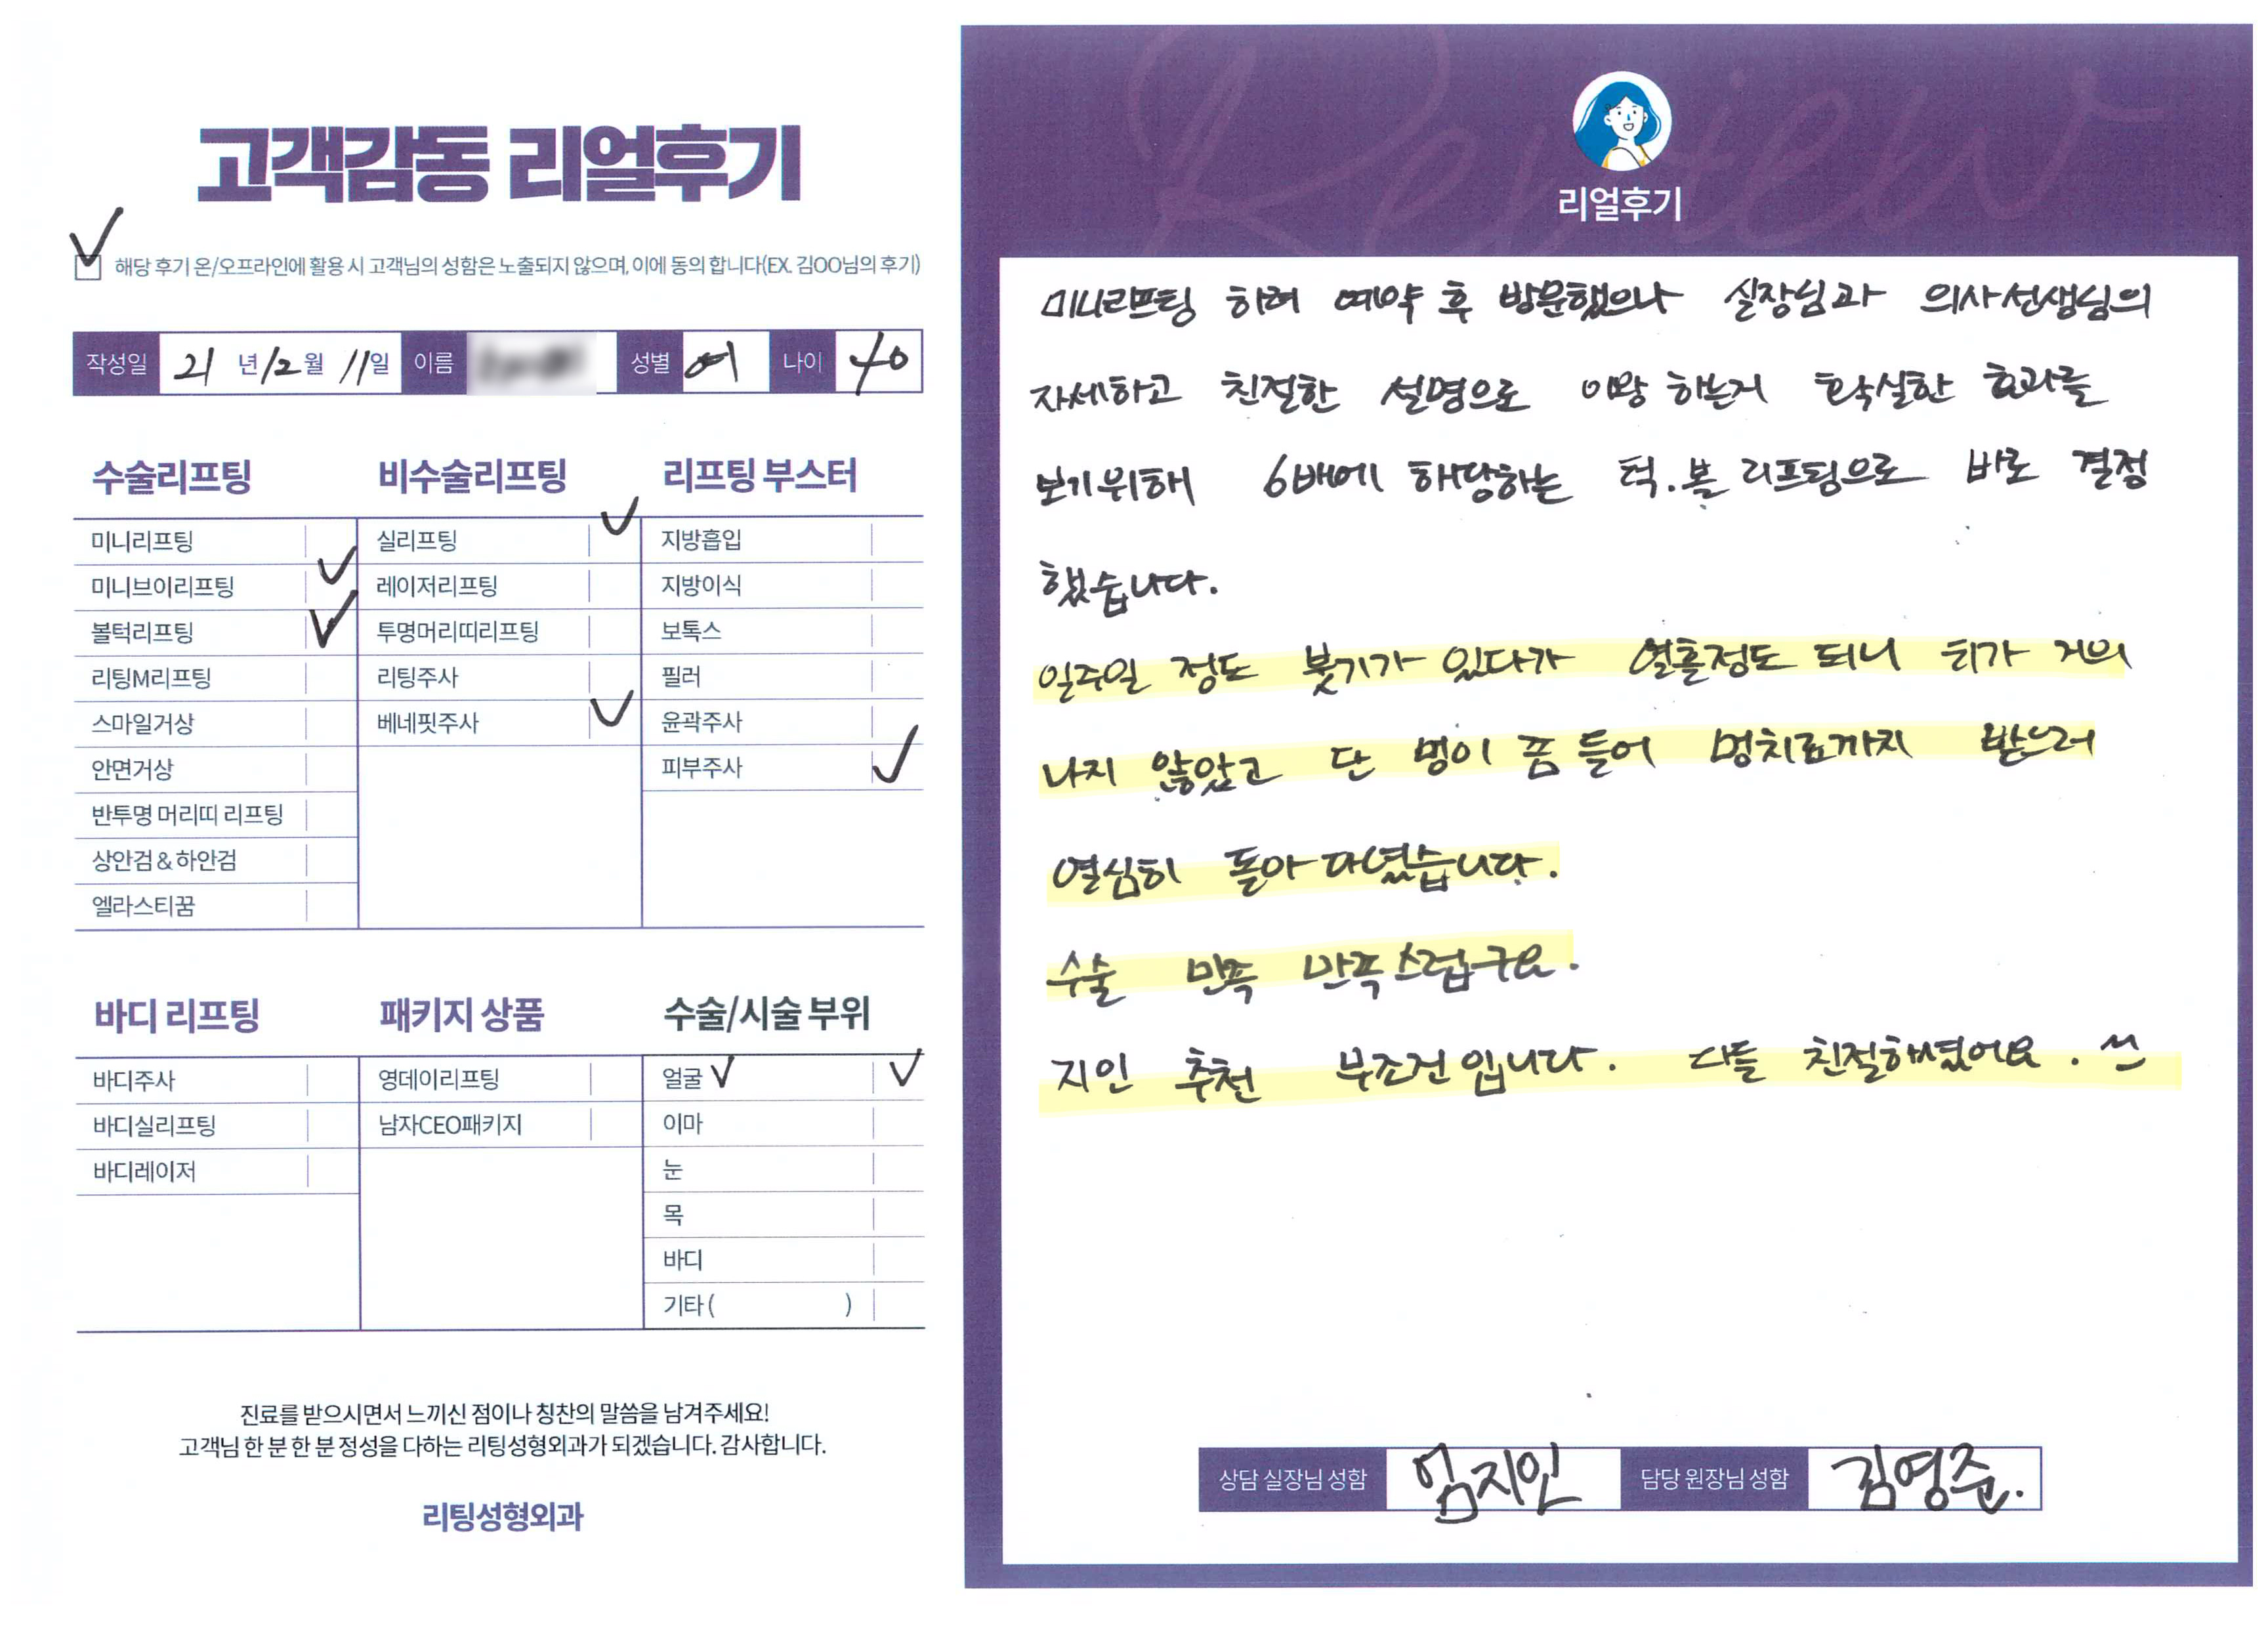 고객감동 리얼후기
해당 후기 온/오프라인에 활용 시 고객님의 성함은 노출되지 않으며, 이에 동의 합니다(EX. 김OO님의 후기)
작성일 21 년 12 월 11 일 이름 성별 여 나이 40
수술리프팅
미니리프팅
미니브이리프팅
볼턱리프팅
리팅M리프팅
스마일거상
안면거상
반투명 머리띠 리프팅
상안검 & 하안검
엘라스티꿈
비수술리프팅
실리프팅
레이저리프팅
투명머리띠리프팅
리팅주사
베네핏주사
리프팅 부스터
지방흡입
지방이식
보톡스
필러
윤곽주사
피부주사
바디 리프팅
바디주사
바디실리프팅
바디레이저
패키지 상품
영데이리프팅
남자CEO패키지
수술/시술 부위
얼굴
이마
눈
목
바디
기타 ( )
진료를 받으시면서 느끼신 점이나 칭찬의 말씀을 남겨주세요!
고객님 한 분 한 분 정성을 다하는 리팅성형외과가 되겠습니다. 감사합니다.
리팅성형외과
Review
리얼후기
미니리프팅 하려 예약 후 방문했으나 실장님과 의사선생님의
자세하고 친절한 설명으로 이왕 하는거 확실한 효과를
보기위해 6배에 해당하는 턱.볼 리프팅으로 바로 결정
했습니다.
일주일 정도 붓기가 있다가 열흘정도 되니 티가 거의
나지 않았고 단 멍이 좀 들어 멍치료까지 받으러
열심히 돌아 다녔습니다.
수술 만족 만족스럽구요.
지인 추천 무조건 입니다. 다들 친절하셨어요.
상담 실장님 성함 임지인 담당 원장님 성함 김영준.